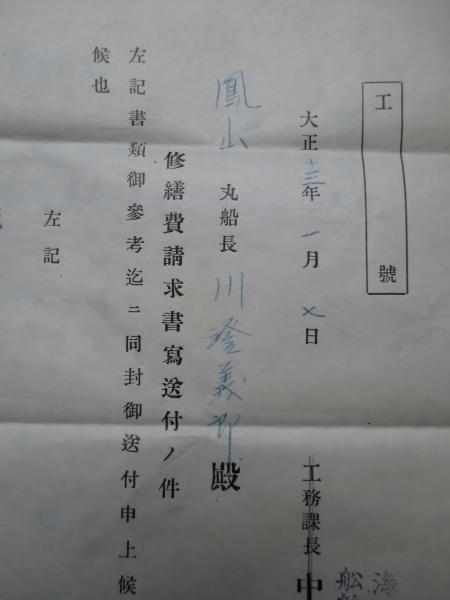 工 號
大正十三年 一月 七日
工務課長 中
海
船舶
鳳山丸船長 川澄義郎殿
修繕費請求書寫送付ノ件
左記書類御參考迄ニ同封御送付申上候
候也
左記